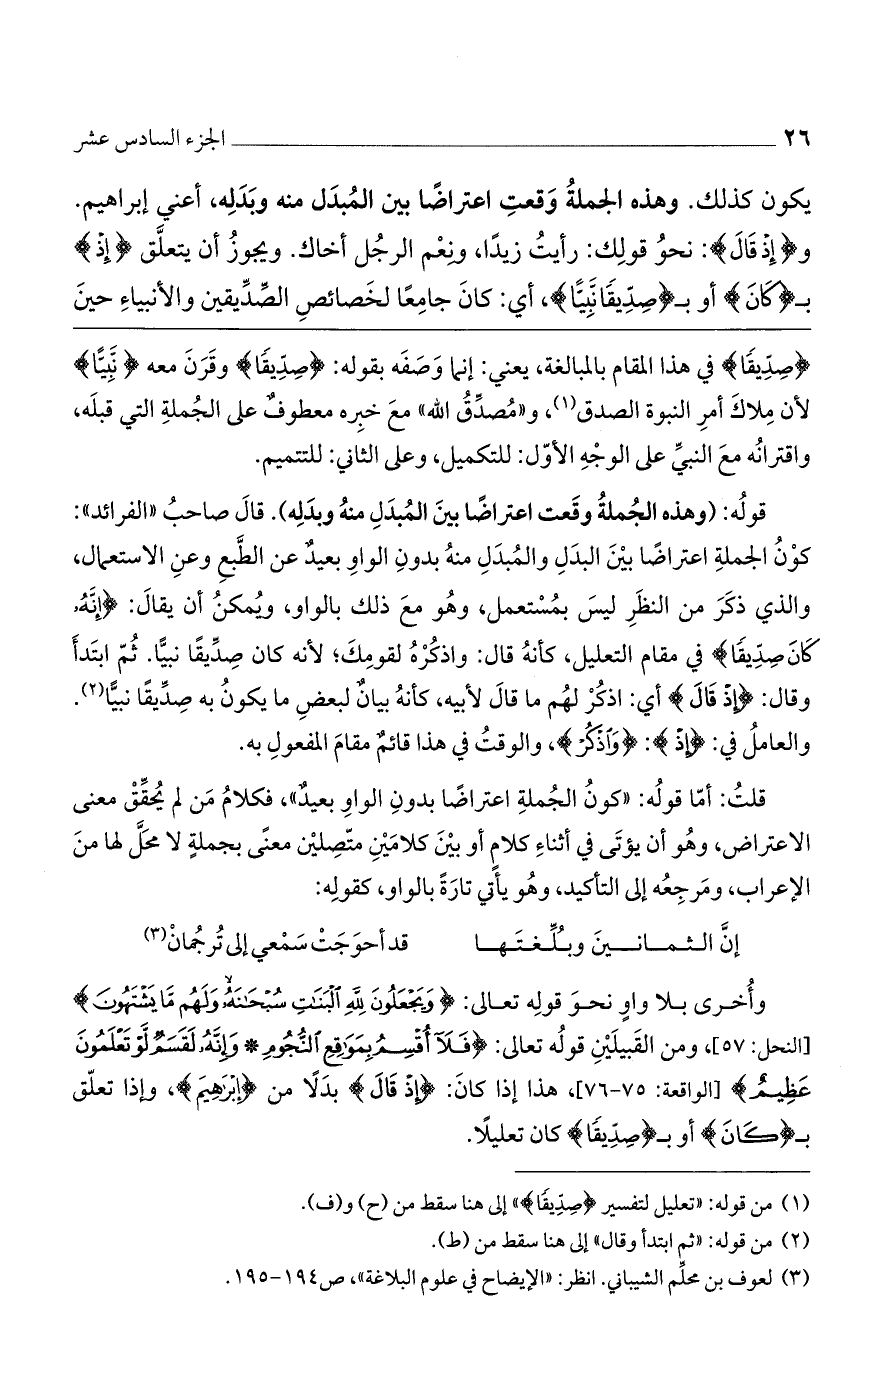 ٢٦ الجزء السادس عشر
يكون كذلك. وهذه الجملةُ وَقعتِ اعتراضًا بين المُبدَل منه وبَدَلِه، أعني إبراهيم.
و﴿إِذْ قَالَ﴾: نحوُ قولِك: رأيتُ زيدًا، ونِعْم الرجُل أخاك. ويجوزُ أن يتعلَّق ﴿إِذْ﴾
بـ﴿كَانَ﴾ أو بـ﴿صِدِّيقًا نَّبِيًّا﴾، أي: كانَ جامِعًا لخَصائصِ الصِّدِّيقين والأنبياءِ حينَ
﴿صِدِّيقًا﴾ في هذا المقام بالمبالغة، يعني: إنما وَصَفَه بقوله: ﴿صِدِّيقًا﴾ وقَرَنَ معه ﴿نَّبِيًّا﴾
لأن مِلاكَ أمرِ النبوة الصدق(١)، و«مُصدِّقُ الله» معَ خبرِه معطوفٌ على الجُملةِ التي قبلَه،
واقترانُه معَ النبيِّ على الوجْهِ الأوّل: للتكميل، وعلى الثاني: للتتميم.
قولُه: (وهذه الجُملةُ وقَعت اعتراضًا بينَ المُبدَلِ منهُ وبدَلِه). قالَ صاحبُ «الفرائد»:
كوْنُ الجملةِ اعتراضًا بيْنَ البدَلِ والمُبدَلِ منهُ بدونِ الواوِ بعيدٌ عن الطَّبعِ وعنِ الاستعمال،
والذي ذكَرَ من النظَرِ ليسَ بمُسْتعمل، وهُو معَ ذلك بالواو، ويُمكنُ أن يقالَ: ﴿إِنَّهُۥ
كَانَ صِدِّيقًا﴾ في مقام التعليل، كأنهُ قال: واذكُرْهُ لقومِكَ؛ لأنه كان صِدِّيقًا نبيًّا. ثُمّ ابتَدأَ
وقال: ﴿إِذْ قَالَ﴾ أي: اذكُرْ لهُم ما قالَ لأبيه، كأنهُ بيانٌ لبعضِ ما يكونُ به صِدِّيقًا نبيًّا(٢).
والعاملُ في: ﴿إِذْ﴾: ﴿وَٱذْكُرْ﴾، والوقتُ في هذا قائمٌ مقامَ المفعولِ به.
قلتُ: أمّا قولُه: «كونُ الجُملةِ اعتراضًا بدونِ الواوِ بعيدٌ»، فكلامُ مَن لم يُحقِّقْ معنى
الاعتراض، وهُو أن يؤتَى في أثناءِ كلامٍ أو بيْنَ كلامَيْنِ متّصِليْن معنًى بجملةٍ لا محَلَّ لها منَ
الإعراب، ومَرجِعُه إلى التأكيد، وهُو يأتي تارَةً بالواو، كقولِه:
إنَّ الثمانـينَ وبُلِّغتَـهـا قد أحوَجَتْ سَمْعي إلى تُرجُمانْ(٣)
وأُخرى بلا واوٍ نحوَ قولِه تعالى: ﴿وَيَجْعَلُونَ لِلَّهِ ٱلْبَنَٰتِ سُبْحَٰنَهُۥۙ وَلَهُم مَّا يَشْتَهُونَ﴾
[النحل: ٥٧]، ومن القَبيلَيْنِ قولُه تعالى: ﴿فَلَآ أُقْسِمُ بِمَوَٰقِعِ ٱلنُّجُومِ * وَإِنَّهُۥ لَقَسَمٌ لَّوْ تَعْلَمُونَ
عَظِيمٌ﴾ [الواقعة: ٧٥-٧٦]، هذا إذا كانَ: ﴿إِذْ قَالَ﴾ بدَلًا من ﴿إِبْرَٰهِيمَ﴾، وإذا تعلّق
بـ﴿كَانَ﴾ أو بـ﴿صِدِّيقًا﴾ كان تعليلًا.
(١) من قوله: «تعليل لتفسير ﴿صِدِّيقًا﴾» إلى هنا سقط من (ح) و(ف).
(٢) من قوله: «ثم ابتدأ وقال» إلى هنا سقط من (ط).
(٣) لعوف بن محلِّم الشيباني. انظر: «الإيضاح في علوم البلاغة»، ص١٩٤-١٩٥.